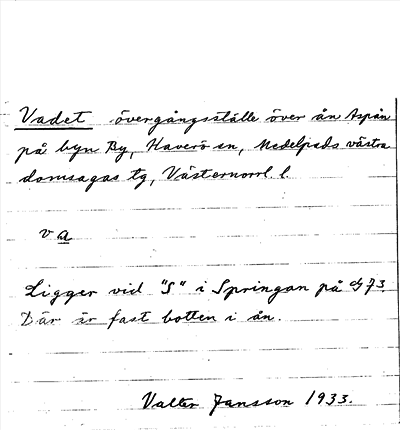 Vadet övergångsställe över ån Aspån
på byn By, Haverö sn, Medelpads västra
domsagas tg, Västernorrl. l.
v a
Ligger vid "S" i Springan på 73.
Där är fast botten i ån.
Valter Jansson 1933.